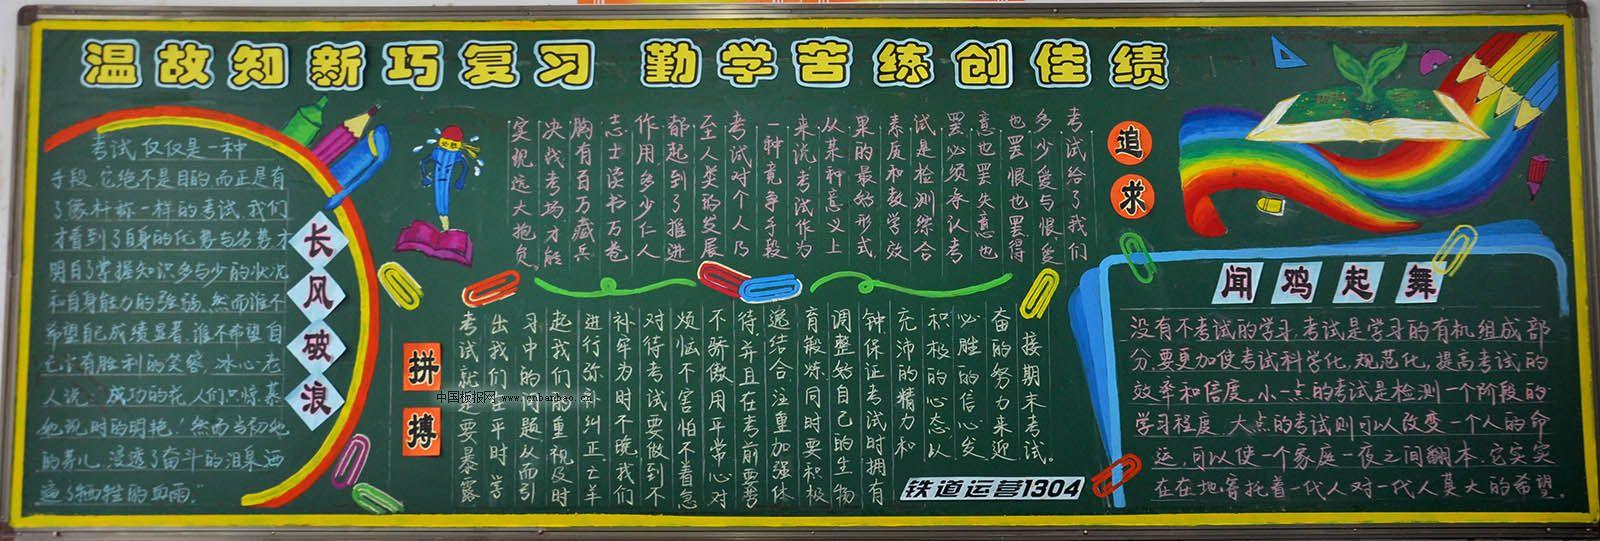 温故知新巧复习 勤学苦练创佳绩
考试仅仅是一种
手段,它绝不是目的,而正是有
了像杆称一样的考试,我们
才看到了自身的优势与劣势,才
明白了掌握知识多与少的状况
和自身能力的强弱,然而谁不
希望自己成绩显著,谁不希望自
己有胜利的笑容,冰心老
人说:"成功的花,人们只惊慕
她现时的明艳!然而当初她
的芽儿,浸透了奋斗的泪泉,洒
遍了牺牲的血雨。"
长风破浪
必胜
追求
考试给了我们
多少爱与恨,爱
也罢恨也罢,得
意也罢失意也
罢,必须承认考
试是检测综合
素质和教学效
果的最始形式,
从某种意义上
来说,考试作为
一种竞争手段
考试对个人乃
至人类的发展
都起到了推进
作用,多少仁人
志士读书万卷
胸有百万藏兵
决战考场,才能
实现远大抱负
拼搏
接期末考试。
奋的努力来迎
必胜的信心,发
积极的心态,以
充沛的精力和
钟,保证考试时拥有
调整好自己的生物
育锻炼,同时要积极
逸结合,注重加强体
待,并且在考前要劳
不骄傲,用平常心对
烦,怯不害怕,不着急
对待考试要做到不
补牢为时不晚,我们
进行弥补纠正,亡羊
起我们的重视,及时
习中的问题,从而引
出我们在平时学
考试就是要暴露
中国板报网 www.cnbanbao.cn
铁道运营1304
闻鸡起舞
没有不考试的学习,考试是学习的有机组成部
分,要更加使考试科学化,规范化,提高考试的
效率和信度。小一点的考试是检测一个阶段的
学习程度,大点的考试则可以改变一个人的命
运,可以使一个家庭一夜之间翻本,它实实
在在地寄托着一代人对一代人莫大的希望。